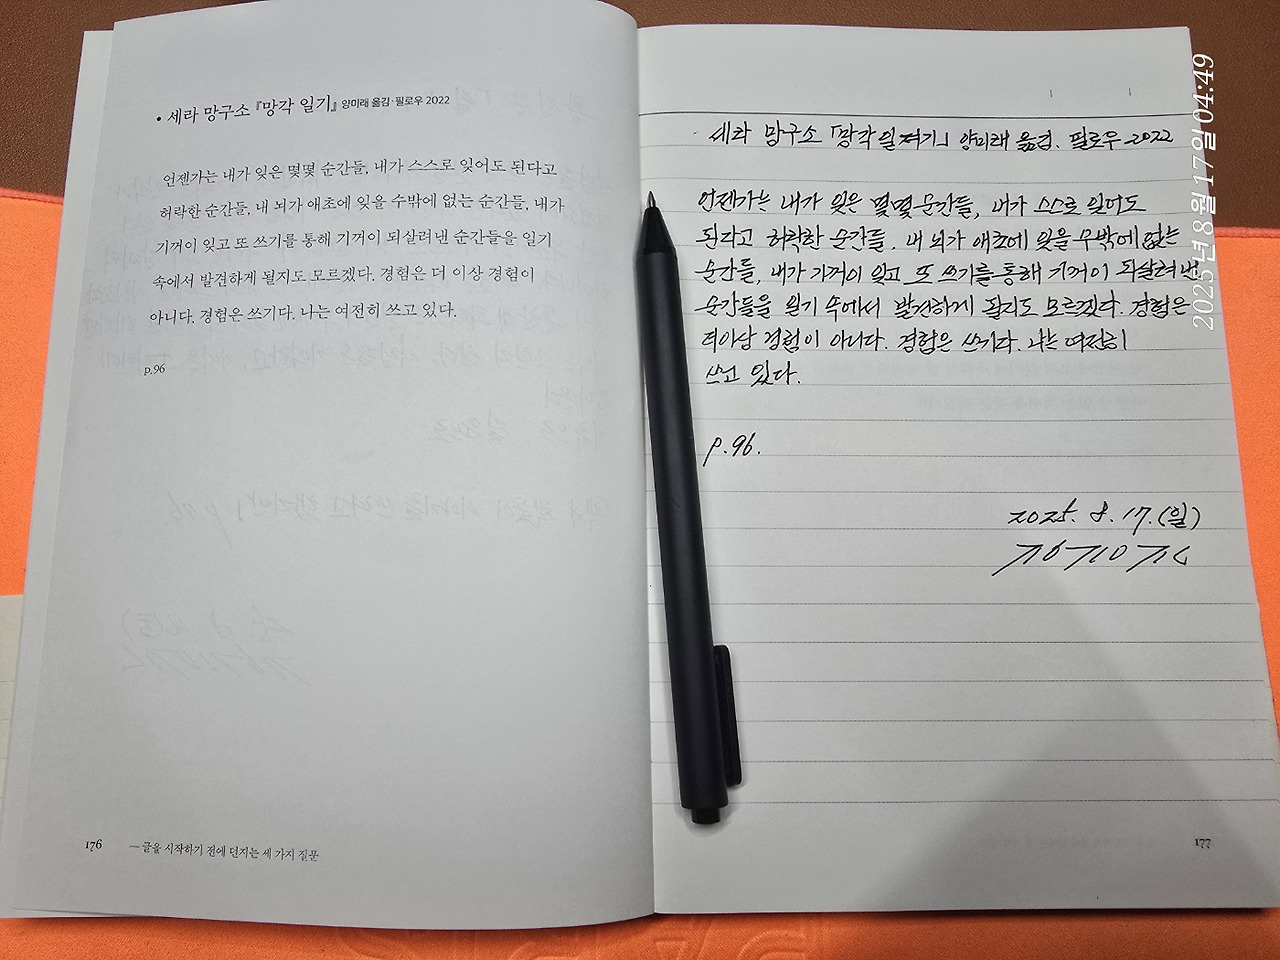 • 세라 망구소 『망각 일기』 양미래 옮김 · 필로우 2022
언젠가는 내가 잊은 몇몇 순간들, 내가 스스로 잊어도 된다고
허락한 순간들, 내 뇌가 애초에 잊을 수밖에 없는 순간들, 내가
기꺼이 잊고 또 쓰기를 통해 기꺼이 되살려낸 순간들을 일기
속에서 발견하게 될지도 모르겠다. 경험은 더 이상 경험이
아니다. 경험은 쓰기다. 나는 여전히 쓰고 있다.
p.96
176 — 글을 시작하기 전에 던지는 세 가지 질문
· 세라 망구소 「망각 일기」 양미래 옮김. 필로우 2022
언젠가는 내가 잊은 몇몇 순간들, 내가 스스로 잊어도
된다고 허락한 순간들. 내 뇌가 애초에 잊을 수밖에 없는
순간들, 내가 기꺼이 잊고 또 쓰기를 통해 기꺼이 되살려 낸
순간들을 일기 속에서 발견하게 될지도 모르겠다. 경험은
더이상 경험이 아니다. 경험은 쓰기다. 나는 여전히
쓰고 있다.
p.96.
2025. 8. 17. (일)
177
2025년 8월 17일 04:49